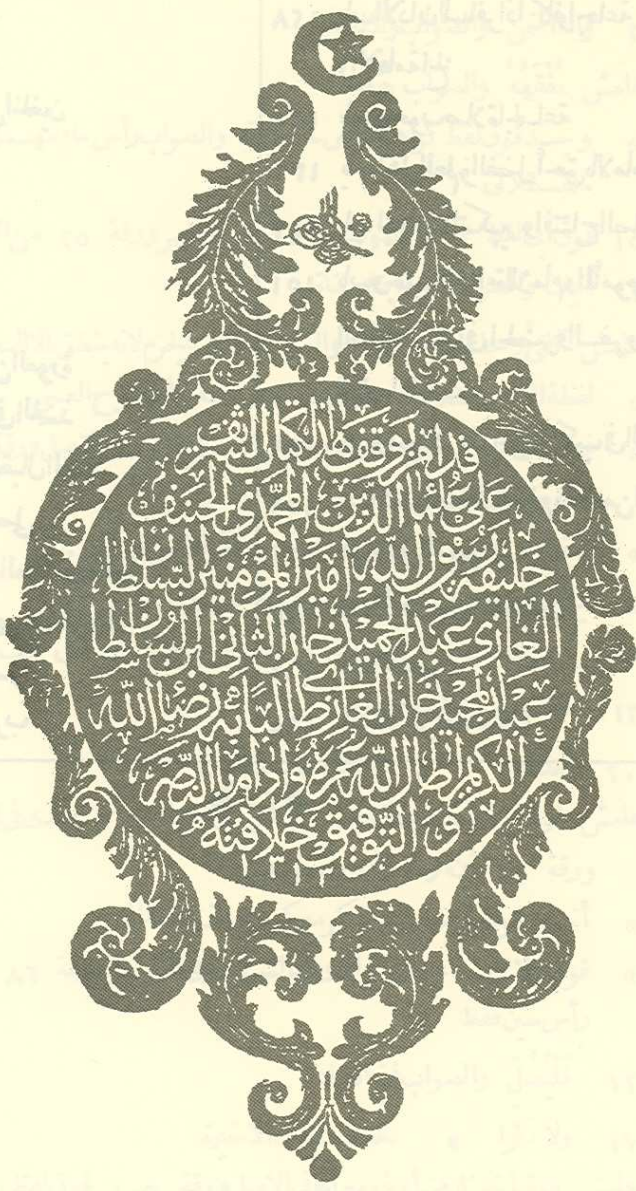 قد امر بوقف هذا الكتاب الشريف
على علماء الدين المحمدي الحنيف
خليفه رسول الله امير المؤمنين السلطان
الغازي عبد الحميد خان الثاني ابن السلطان
عبد المجيد خان الغازي طالبا به رضاء الله
الكريم اطال الله عمره وادام بالنصر
و التوفيق خلافته
١٣١٣